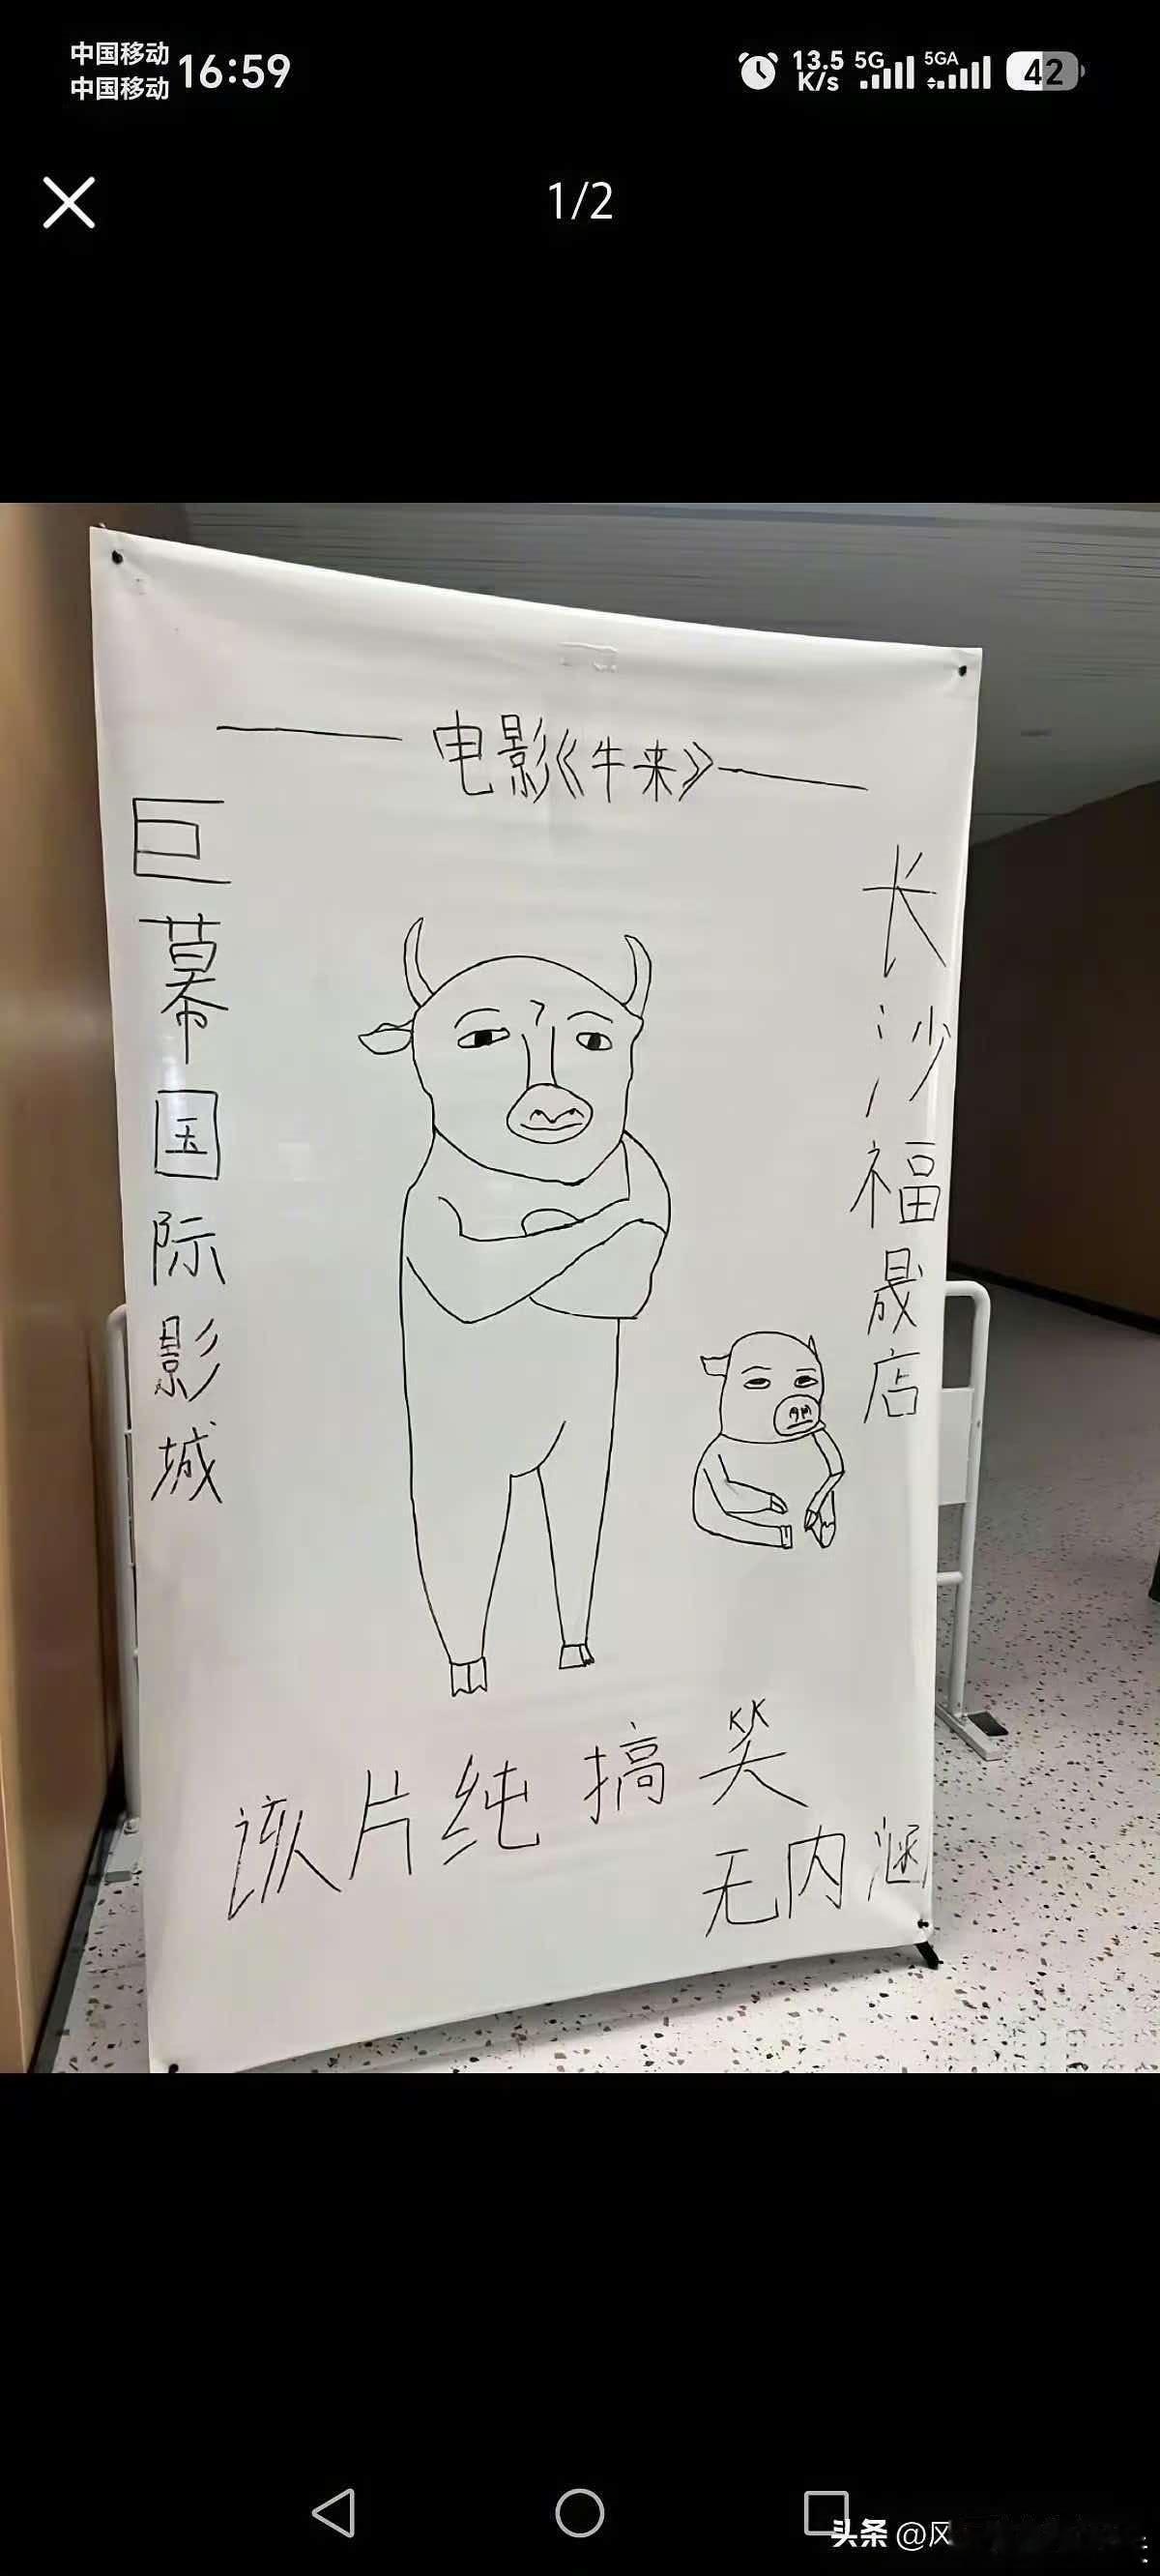 中国移动
中国移动
16:59
13.5
K/s
5G
5GA
42
1/2
电影《牛来》
巨幕国际影城
长沙福晟店
该片纯搞笑
无内涵
头条 @风